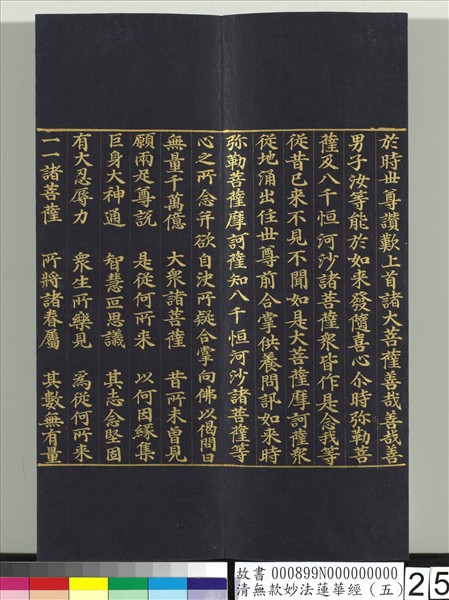 於時世尊讚歎上首諸大菩薩善哉善哉善
男子汝等能於如來發隨喜心尒時弥勒菩
薩及八千恒河沙諸菩薩衆皆作是念我等
從昔已來不見不聞如是大菩薩摩訶薩衆
從地涌出住世尊前合掌供養問訊如來時
弥勒菩薩摩訶薩知八千恒河沙諸菩薩等
心之所念并欲自決所疑合掌向佛以偈問曰
無量千萬億 大衆諸菩薩 昔所未曾見
願兩足尊說 是從何所來 以何因緣集
巨身大神通 智慧叵思議 其志念堅固
有大忍辱力 衆生所樂見 為從何所來
一一諸菩薩 所將諸眷屬 其數無有量
故書 000899N000000000
清無款妙法蓮華經(五)
25